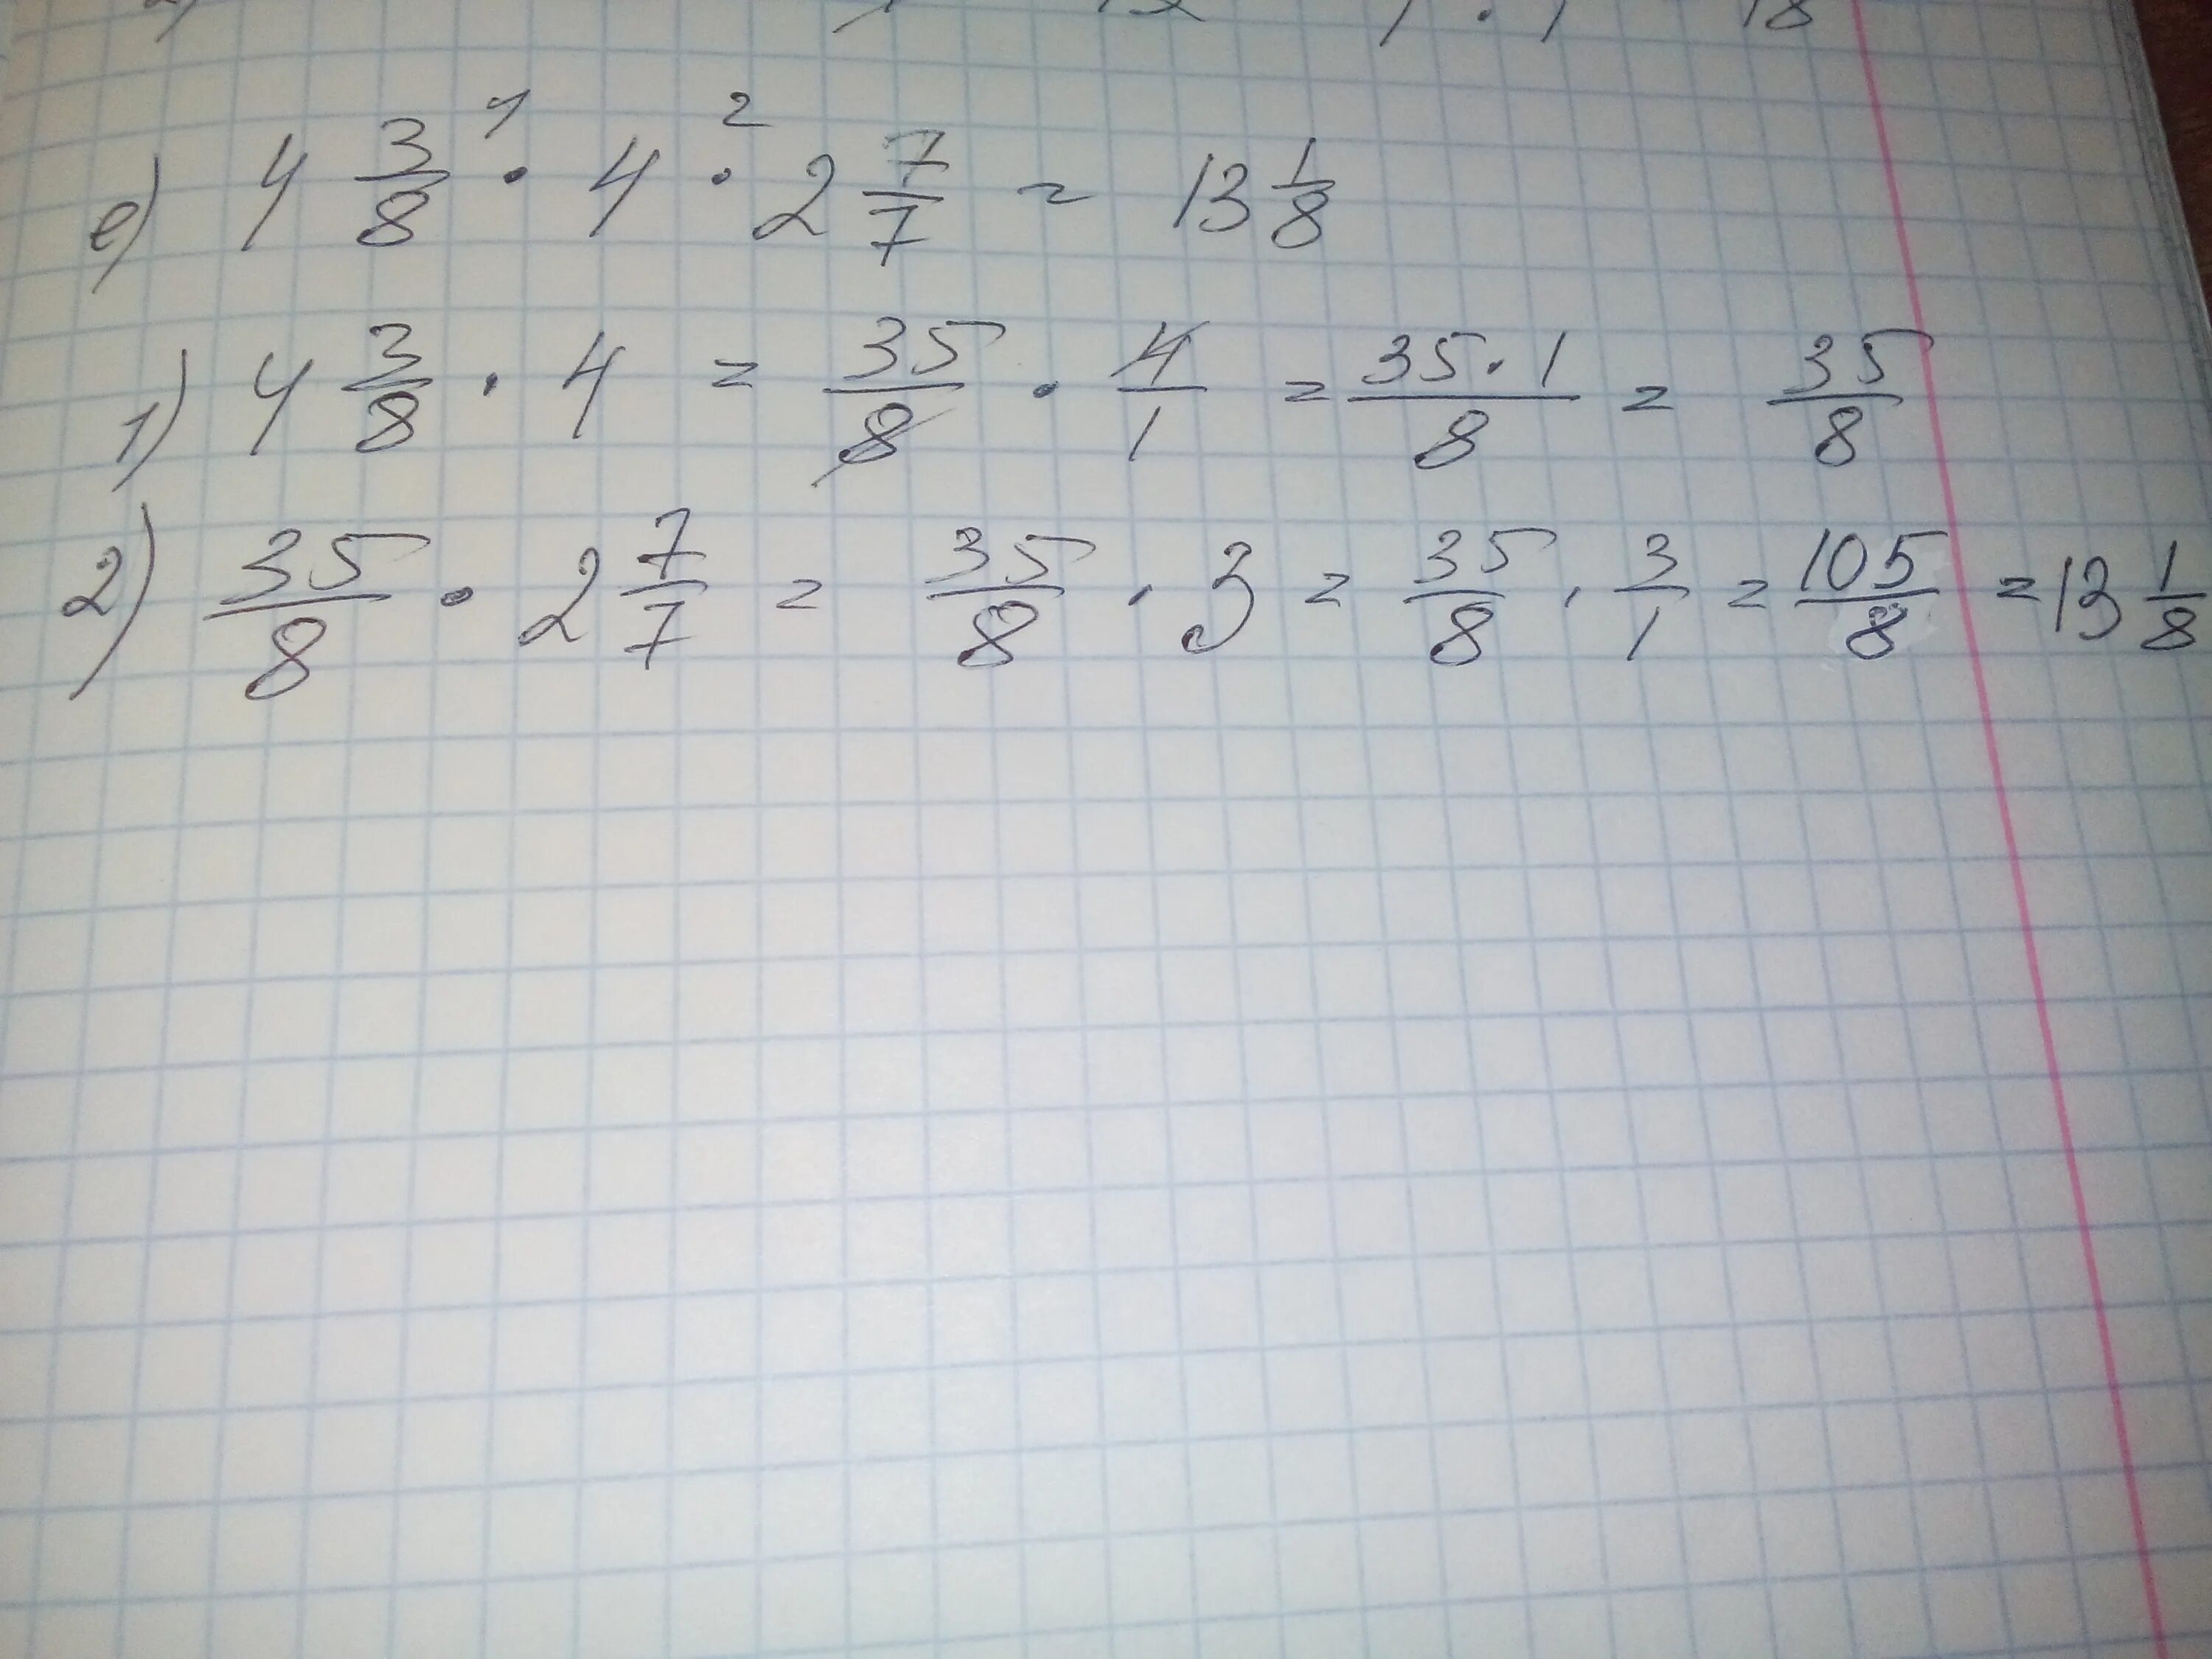 18
1 2
е) 4 3/8 · 4 · 2 7/7 = 13 1/8
1) 4 3/8 · 4 = 35/8 · 4/1 = 35·1/8 = 35/8
2) 35/8 · 2 7/7 = 35/8 · 3 = 35/8 · 3/1 = 105/8 = 13 1/8